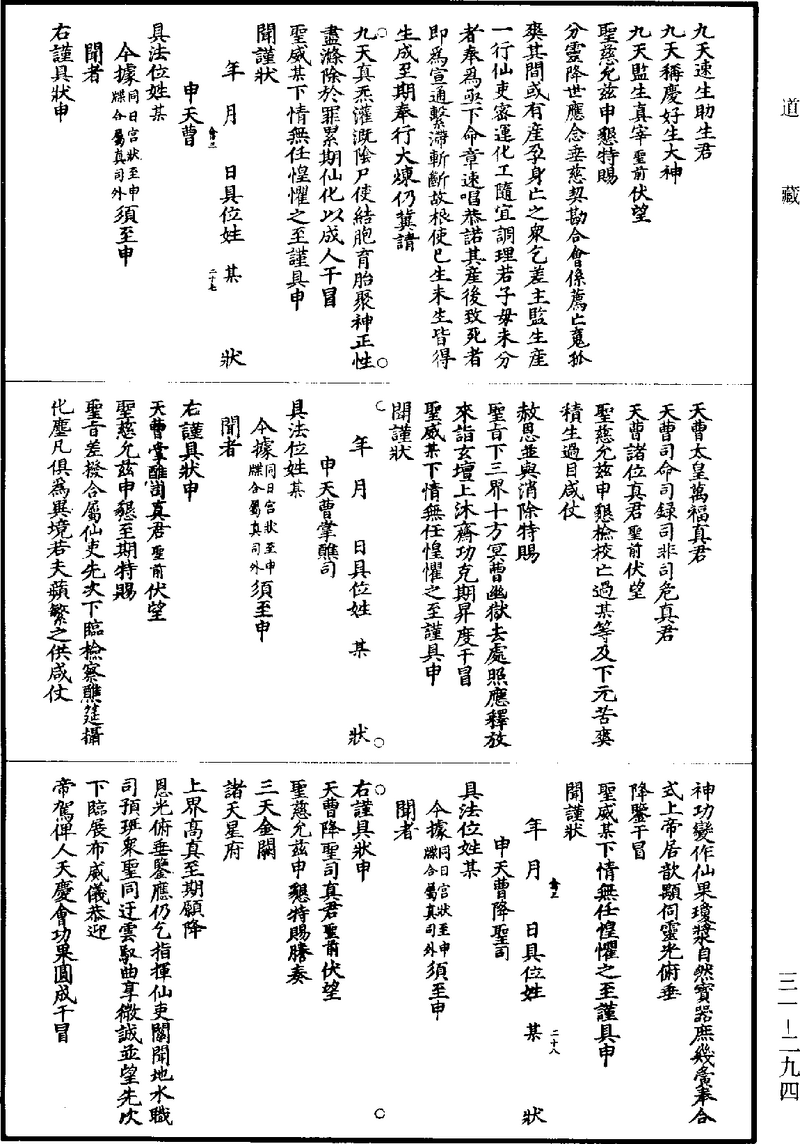 道藏
九天速生助生君
九天稱慶好生大神
九天監生真宰聖前伏望
聖慈允兹申懇特賜
分靈降世應念垂慈契勘合會係薦亡䰟孤
爽其間或有產孕身亡之衆乞差主監生產
一行仙吏密運化工隨宜調理若子母未分
者奉爲亟下命章速唱恭諾其產後致死者
即爲宣通繫滯斬斷故根使已生未生皆得
生成至期奉行大煉仍冀請
九天真炁灌溉陰尸使結胞育胎聚神正性
盡滌除於罪累期仙化以成人干冒
聖威某下情無任惶懼之至謹具申
聞謹狀
年 月 日具位姓 某 狀
二十七
申天曹
具法位姓某
今據同日宫狀至申牒合屬真司外須至申
聞者
右謹具狀申
天曹太皇萬福真君
天曹司命司録司非司危真君
天曹諸位真君聖前伏望
聖慈允兹申懇檢校亡過某等及下元苦爽
積生過目咸仗
赦恩並與消除特賜
聖旨下三界十方冥曹幽獄去處照應釋放
來詣玄壇上沐齋功克期昇度干冒
聖威某下情無任惶懼之至謹具申
聞謹狀
年 月 日具位姓 某 狀
申天曹掌醮司
具法位姓某
今據同日宫狀至申牒合屬真司外須至申
聞者
右謹具狀申
天曹掌醮司真君聖前伏望
聖慈允兹申懇至期特賜
聖旨差撥合屬仙吏先次下臨檢察醮筵攝
化塵凡俱爲異境若夫蘋蘩之供咸仗
神功變作仙果瓊漿自然寳器庶幾廣奉合
式上帝居歆顯伺靈光俯垂
降鑒干冒
聖威某下情無任惶懼之至謹具申
聞謹狀
年 月 日具位姓 某 狀
二十八
申天曹降聖司
具法位姓某
今據同日宫狀至申牒合屬真司外須至申
聞者
右謹具狀申
天曹降聖司真君聖前伏望
聖慈允兹申懇特賜謄奏
三天金闕
諸天星府
上界高真至期願降
恩光俯垂鑒應仍乞指揮仙吏關聞地水職
司預班衆聖同迂雲馭曲享微誠並望先次
下臨展布威儀恭迎
帝駕俾人天慶會功果圓成干冒
三一—二九四